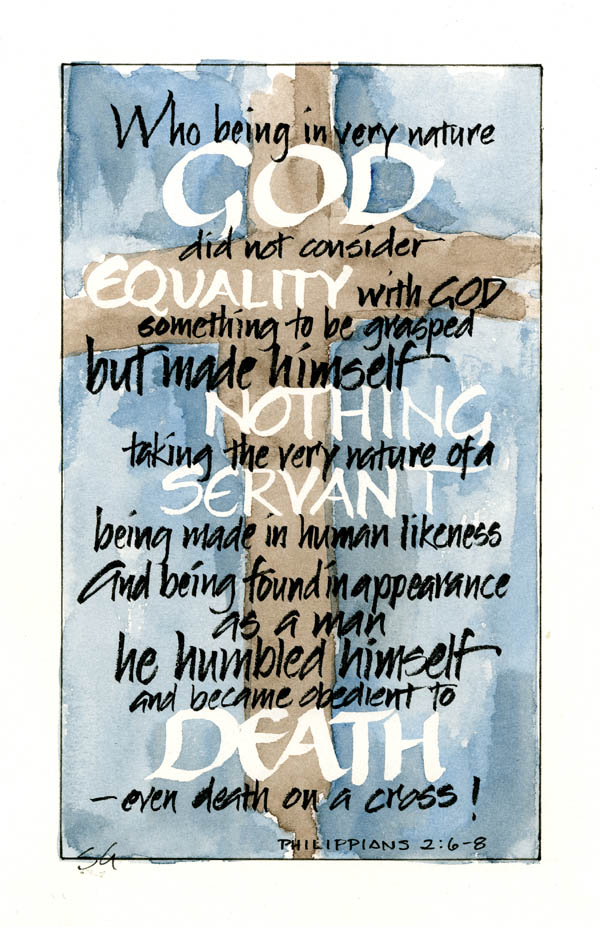 Who being in very nature
GOD
did not consider
EQUALITY with GOD
something to be grasped
but made himself
NOTHING
taking the very nature of a
SERVANT
being made in human likeness
And being found in appearance
as a man
he humbled himself
and became obedient to
DEATH
– even death on a cross!
PHILIPPIANS 2:6-8
SG